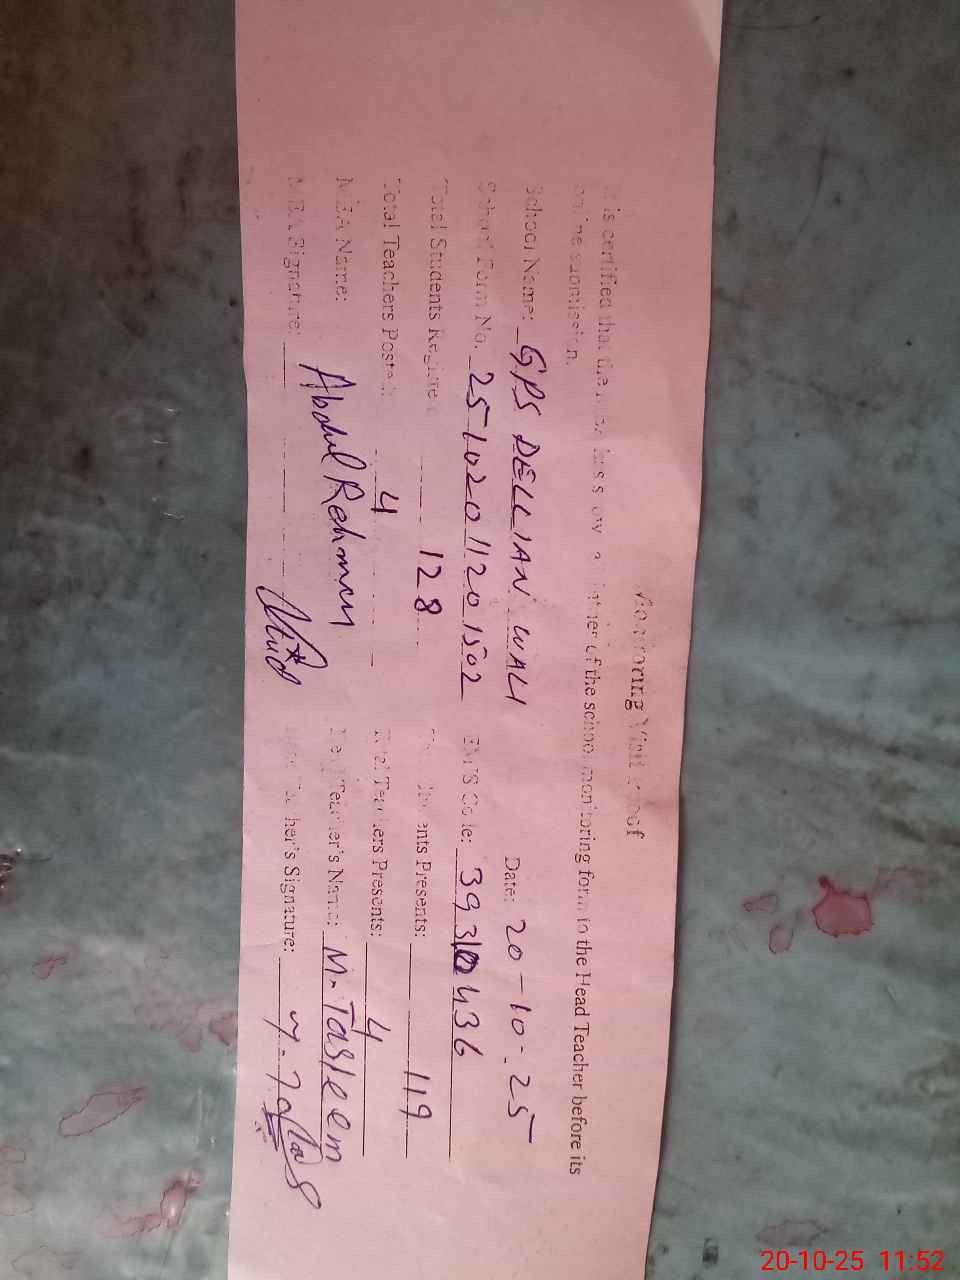 Monitoring Visit Proof
It is certified that the has shown a of the school monitoring form to the Head Teacher before its
online submission.
School Name: GPS DELLIAN WALI Date: 20-10-25
School Form No. 25102011201502 EMIS Code:
Total Students 128 Students Presents: 119
Total Teachers Posted: 4 Total Teachers Presents: 4
MEA Name: Abdul Rehman Head Teacher's Name: M. Tasleem
MEA Signature: Head Teacher's Signature:
20-10-25 11:52